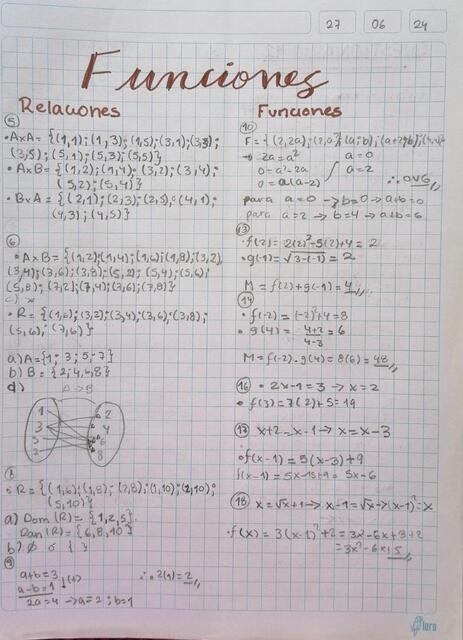 27 06 24
Funciones
Relaciones
⑤
• A×A = {(1,1);(1,3);(1,5);(3,1);(3,3);
(3,5);(5,1);(5,3);(5,5)}
• A×B = {(1,2);(1,4);(3,2);(3,4);
(5,2);(5,4)}
• B×A = {(2,1);(2,3);(2,5);(4,1);
(4,3);(4,5)}
⑥
• A×B = {(1,2);(1,4);(1,6);(1,8);(3,2)
(3,4);(3,6);(3,8);(5,2);(5,4);(5,6);
(5,8);(7,2);(7,4);(7,6);(7,8)}
c) x
• R = {(1,6);(3,2);(3,4);(3,6);(3,8);
(5,6);(7,6)}
a) A={1; 3; 5; 7}
b) B = {2;4;6;8}
d) A→B
1 2
3 4
5 6
7 8
⑧
• R = {(1,6);(1,8);(2,8);(1,10);(2,10);
(5,10)}
a) Dom (R) = {1,2,5}
Ran (R) = {6,8,10}
b) ∅ o { }
⑨
a+b=3
a-b=1 ↓(+)
2a=4 → a=2; b=1
∴ 2(1)=2
Funciones
⑩
→ 2a=a²
0=a²-2a
0=a(a-2)
a=0
a=2
∴ 0v6
para a=0 → b=0 → a+b=0
para a=2 → b=4 → a+b=6
⑬
• f(2) = 2(2)²-5(2)+4 = 2
• g(-1) = √3-(-1) = 2
M = f(2)+g(-1) = 4
⑭
• f(-2) = (-2)²+4=8
• g(4) = 4+2/4-3 = 6
M = f(-2)·g(4) = 8(6) = 48
⑯ • 2x-1=3 → x=2
• f(3)=7(2)+5=19
⑰ x+2=x-1 → x=x-3
• f(x-1) = 5(x-3)+9
f(x-1) = 5x-15+9 = 5x-6
⑱ x=√x+1 → x-1=√x → (x-1)²=x
• f(x) = 3(x-1)²+2 = 3x²-6x+3+2
= 3x²-6x+5
Flora